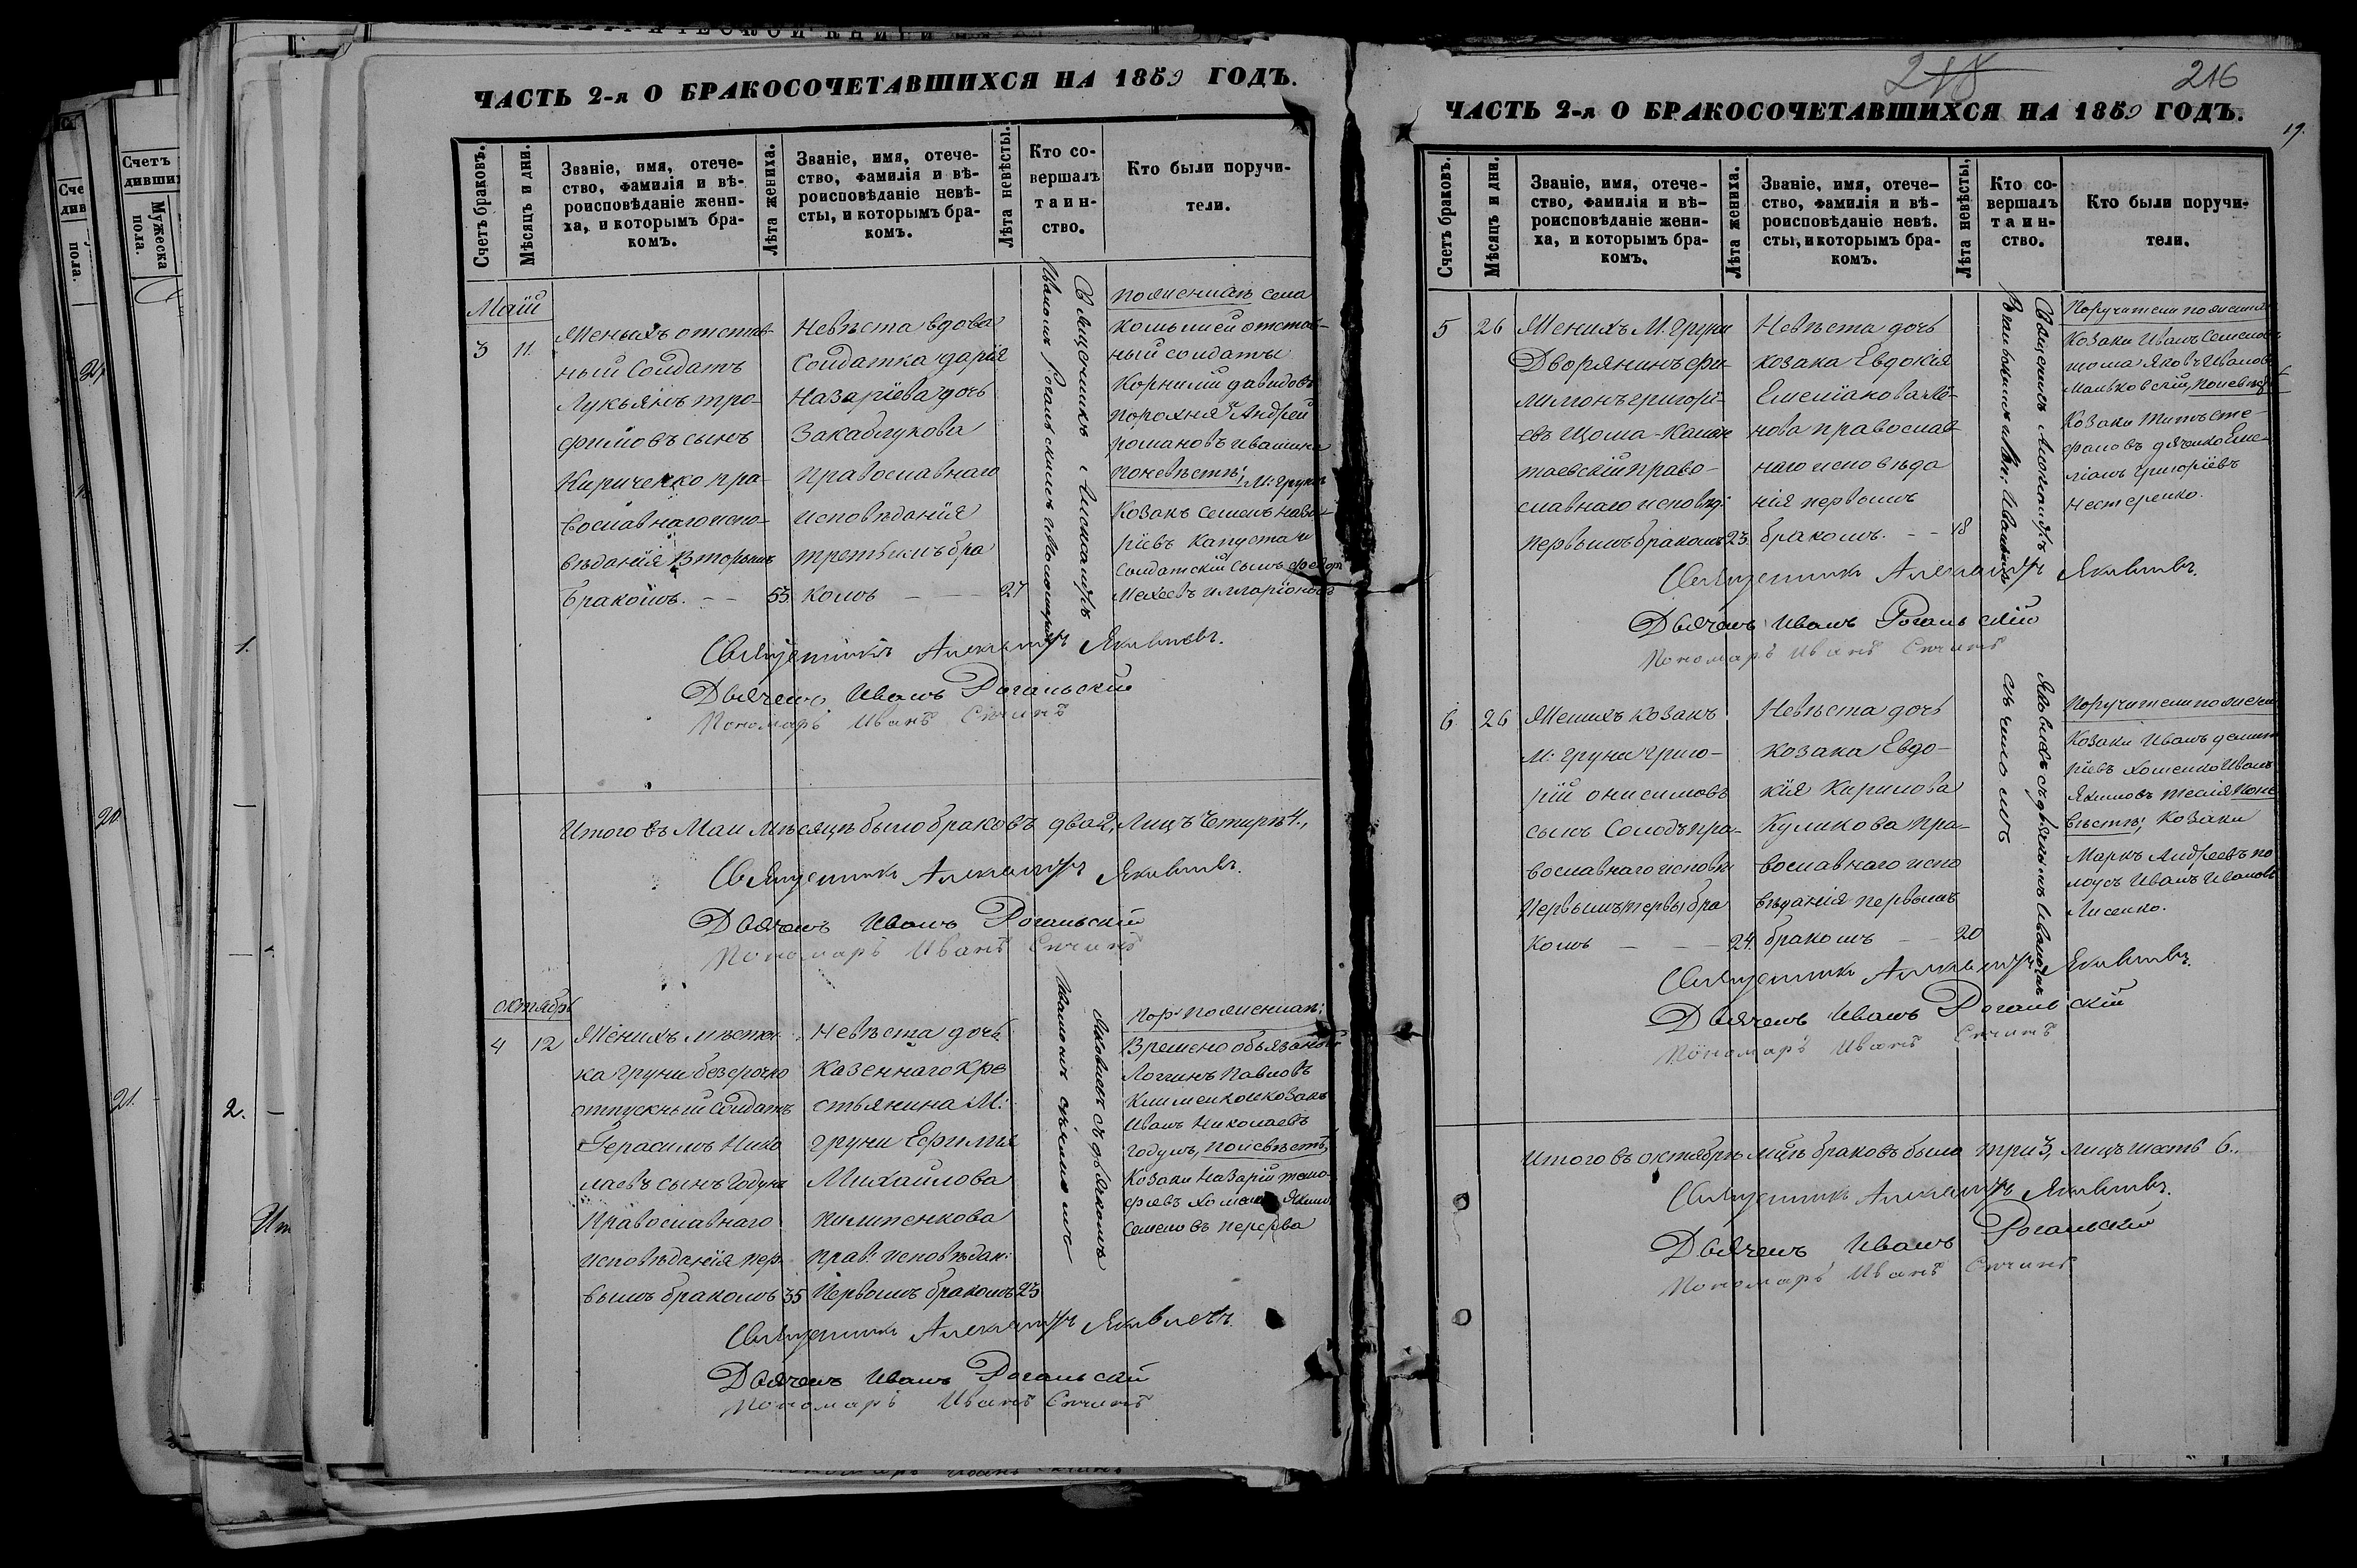 ЧАСТЬ 2-я О БРАКОСОЧЕТАВШИХСЯ НА 1859 ГОДЪ.
Счетъ браковъ.
Мѣсяцъ и дни.
Званіе, имя, отече-
ство, фамилія и вѣ-
роисповѣданіе жени-
ха, и которымъ бра-
комъ.
Лѣта жениха.
Званіе, имя, отече-
ство, фамилія и вѣ-
роисповѣданіе невѣ-
сты, и которымъ бра-
комъ.
Лѣта невѣсты.
Кто со-
вершалъ
таин-
ство.
Кто были поручи-
тели.
Май
3
11.
Женихъ отстав-
ный Солдатъ
Лукьянъ Тро-
фимовъ сынъ
Кириченко пра-
вославнаго испо-
вѣданія Вторымъ
Бракомъ. 53
Невѣста вдова
Солдатка Дарія
Назаріева дочь
Закаблукова
Православнаго
исповѣданія
третьимъ бра
комъ 27
Священникъ Александръ
Иваномъ Рогальскимъ
по женихѣ села
отстав-
ный солдаты
Корнилій Давидовъ
Андрей
романовъ
По невѣстѣ; М: Груни
Козакъ Семенъ Наза-
ріевъ Капуста и
Солдатскій сынъ Федоръ
Священникъ Александръ Яковлевъ.
Дьячокъ Иванъ Рогальскій
Пономарь Иванъ
Итого въ Маи Мѣсяцѣ было браковъ два 2, Лицъ Четыре 4.,
Священникъ Александръ Яковлевъ.
Дьячокъ Иванъ Рогальскій
Пономарь Иванъ
октябрь
4
12
Женихъ мѣстеч-
ка Груни безсрочно
отпускный Солдатъ
Герасимъ Нико
лаевъ сынъ Годунъ
Православнаго
исповѣданія пер-
вымъ бракомъ 35
Невѣста дочь
Казеннаго Кре
стьянина М:
Груни Ефимія
Михайлова
Пилипенкова
прав: исповѣдан:
Первымъ бракомъ 23
Яковлевъ съ дьячкомъ
Иваномъ
Пор: по женихѣ;
Временно обязаный
Логгинъ Павловъ
Клименко и козакъ
Иванъ Николаевъ
Годунъ, по невѣстѣ,
Козаки Назарій Тимо-
феевъ
Семеновъ Перерва
Священникъ Александръ Яковлевъ.
Дьячокъ Иванъ Рогальскій
Пономарь Иванъ
216
19.
ЧАСТЬ 2-я О БРАКОСОЧЕТАВШИХСЯ НА 1859 ГОДЪ.
Счетъ браковъ.
Мѣсяцъ и дни.
Званіе, имя, отече-
ство, фамилія и вѣ-
роисповѣданіе жени-
ха, и которымъ бра-
комъ.
Лѣта жениха.
Званіе, имя, отече-
ство, фамилія и вѣ-
роисповѣданіе невѣ-
сты, и которымъ бра-
комъ.
Лѣта невѣсты.
Кто со-
вершалъ
таин-
ство.
Кто были поручи-
тели.
5
26
Женихъ М. Груни
Дворянинъ Фи-
лимонъ Григорі-
евъ Щома-Капи
таевскій право-
славнаго исповѣд:
первымъ бракомъ 23
Невѣста дочь
козака Евдокія
Емеліанова
нова православ
наго исповѣда
нія первымъ
бракомъ. 18
Священникъ Александръ
Поручители по женихѣ
Козаки Иванъ Семеновъ
Яковъ Ивановъ
Мальковскій,
Козаки Титъ Сте-
фановъ Дяченко Еме-
ліанъ Григоріевъ
Нестеренко.
Священникъ Александръ Яковлевъ.
Дьячокъ Иванъ Рогальскій
Пономарь Иванъ
6
26
Женихъ козакъ
М: Груни Григо-
рій Онисимовъ
сынъ Солодъ пра-
вославнаго исповѣ
Первымъ первы бра
комъ 24
Невѣста дочь
козака Евдо-
кія Кирилова
Куликова пра-
вославнаго испо
вѣданія первымъ
бракомъ 20
Яковлевъ съ дьячкомъ Иваномъ
Поручители по жених
Козаки Иванъ Демит
ріевъ Хоменко Иванъ
Якимовъ Тесля По не
вѣстѣ; Козаки
Марко Андреевъ
Иванъ Ивановъ
Лисенко.
Священникъ Александръ Яковлевъ.
Дьячокъ Иванъ Рогальскій
Пономарь Иванъ
Итого въ октябрѣ мцѣ браковъ было три 3, лицъ шесть 6..
Священникъ Александръ Яковлевъ.
Дьячокъ Иванъ Рогальскій
Пономарь Иванъ